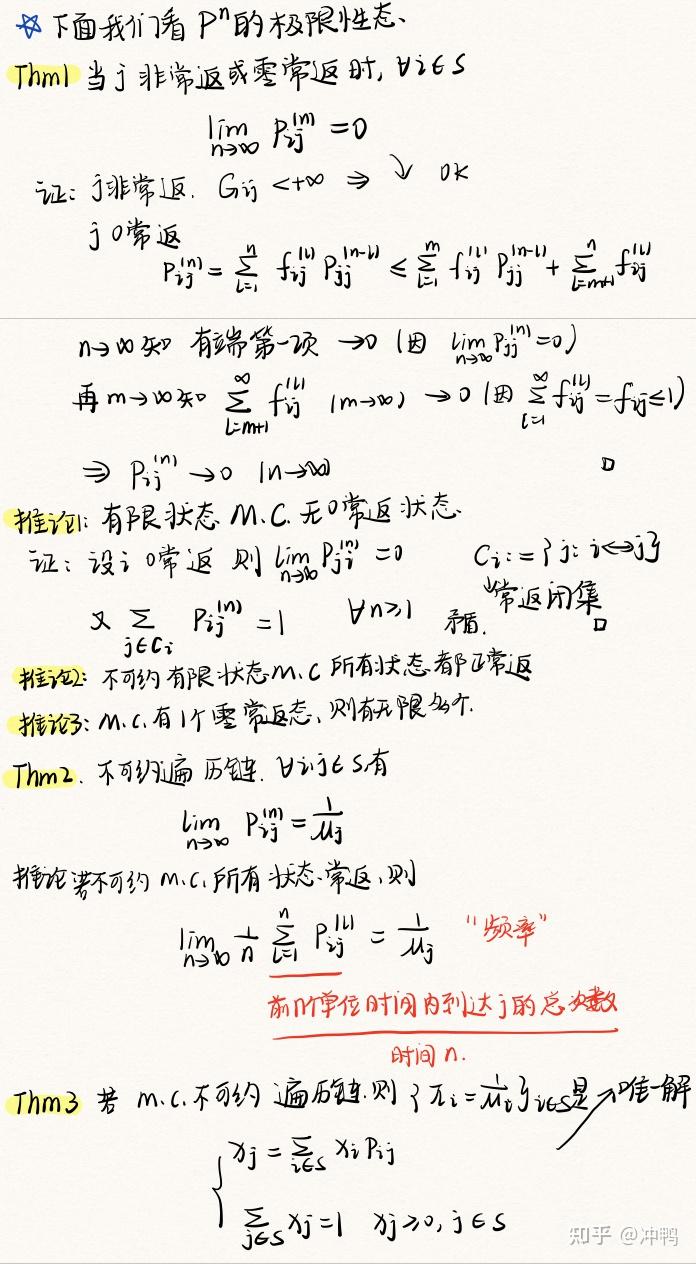 ☆ 下面我们看 Pⁿ的极限性态.
Thm1 当j非常返或零常返时, ∀i∈S
lim_{n→∞} P_{ij}^{(n)} = 0
证: j非常返. G_{ij} <+∞ ⇒ ↘ OK
j 0常返
P_{ij}^{(n)} = \sum_{l=1}^{n} f_{ij}^{(l)} P_{jj}^{(n-l)} ≤ \sum_{l=1}^{m} f_{ij}^{(l)} P_{jj}^{(n-l)} + \sum_{l=m+1}^{n} f_{ij}^{(l)}
n→∞知 有端第一项 →0 (因 lim_{n→∞} P_{jj}^{(n)}=0)
再m→∞知 \sum_{l=m+1}^{∞} f_{ij}^{(l)} (m→∞) →0 (因 \sum_{l=1}^{∞} f_{ij}^{(l)} = f_{ij} ≤1)
⇒ P_{ij}^{(n)} →0 (n→∞) □
推论1: 有限状态 M.C. 无0常返状态.
证: 设i 0常返 则 lim_{n→∞} P_{ji}^{(n)} =0 C_i:={j: i↔j}
↓常返闭集
又 \sum_{j∈C_i} P_{ij}^{(n)} =1 ∀n≥1 矛盾. □
推论2: 不可约有限状态M.C 所有状态都正常返
推论3: M.C.有1个零常返态, 则有无限多个.
Thm2. 不可约遍历链. ∀i,j∈S有
lim_{n→∞} P_{ij}^{(n)} = \frac{1}{μ_j}
推论 若不可约 M.C. 所有状态常返, 则
lim_{n→∞} \frac{1}{n} \sum_{l=1}^{n} P_{ij}^{(l)} = \frac{1}{μ_j} "频率"
前n个单位时间内到达j的总次数
时间n.
Thm3 若 M.C.不可约 遍历链. 则 {π_i = \frac{1}{μ_i}}_{i∈S}是 ↗唯一解
x_j = \sum_{i∈S} x_i P_{ij}
\sum_{j∈S} x_j=1 x_j≥0, j∈S
知乎 @冲鸭